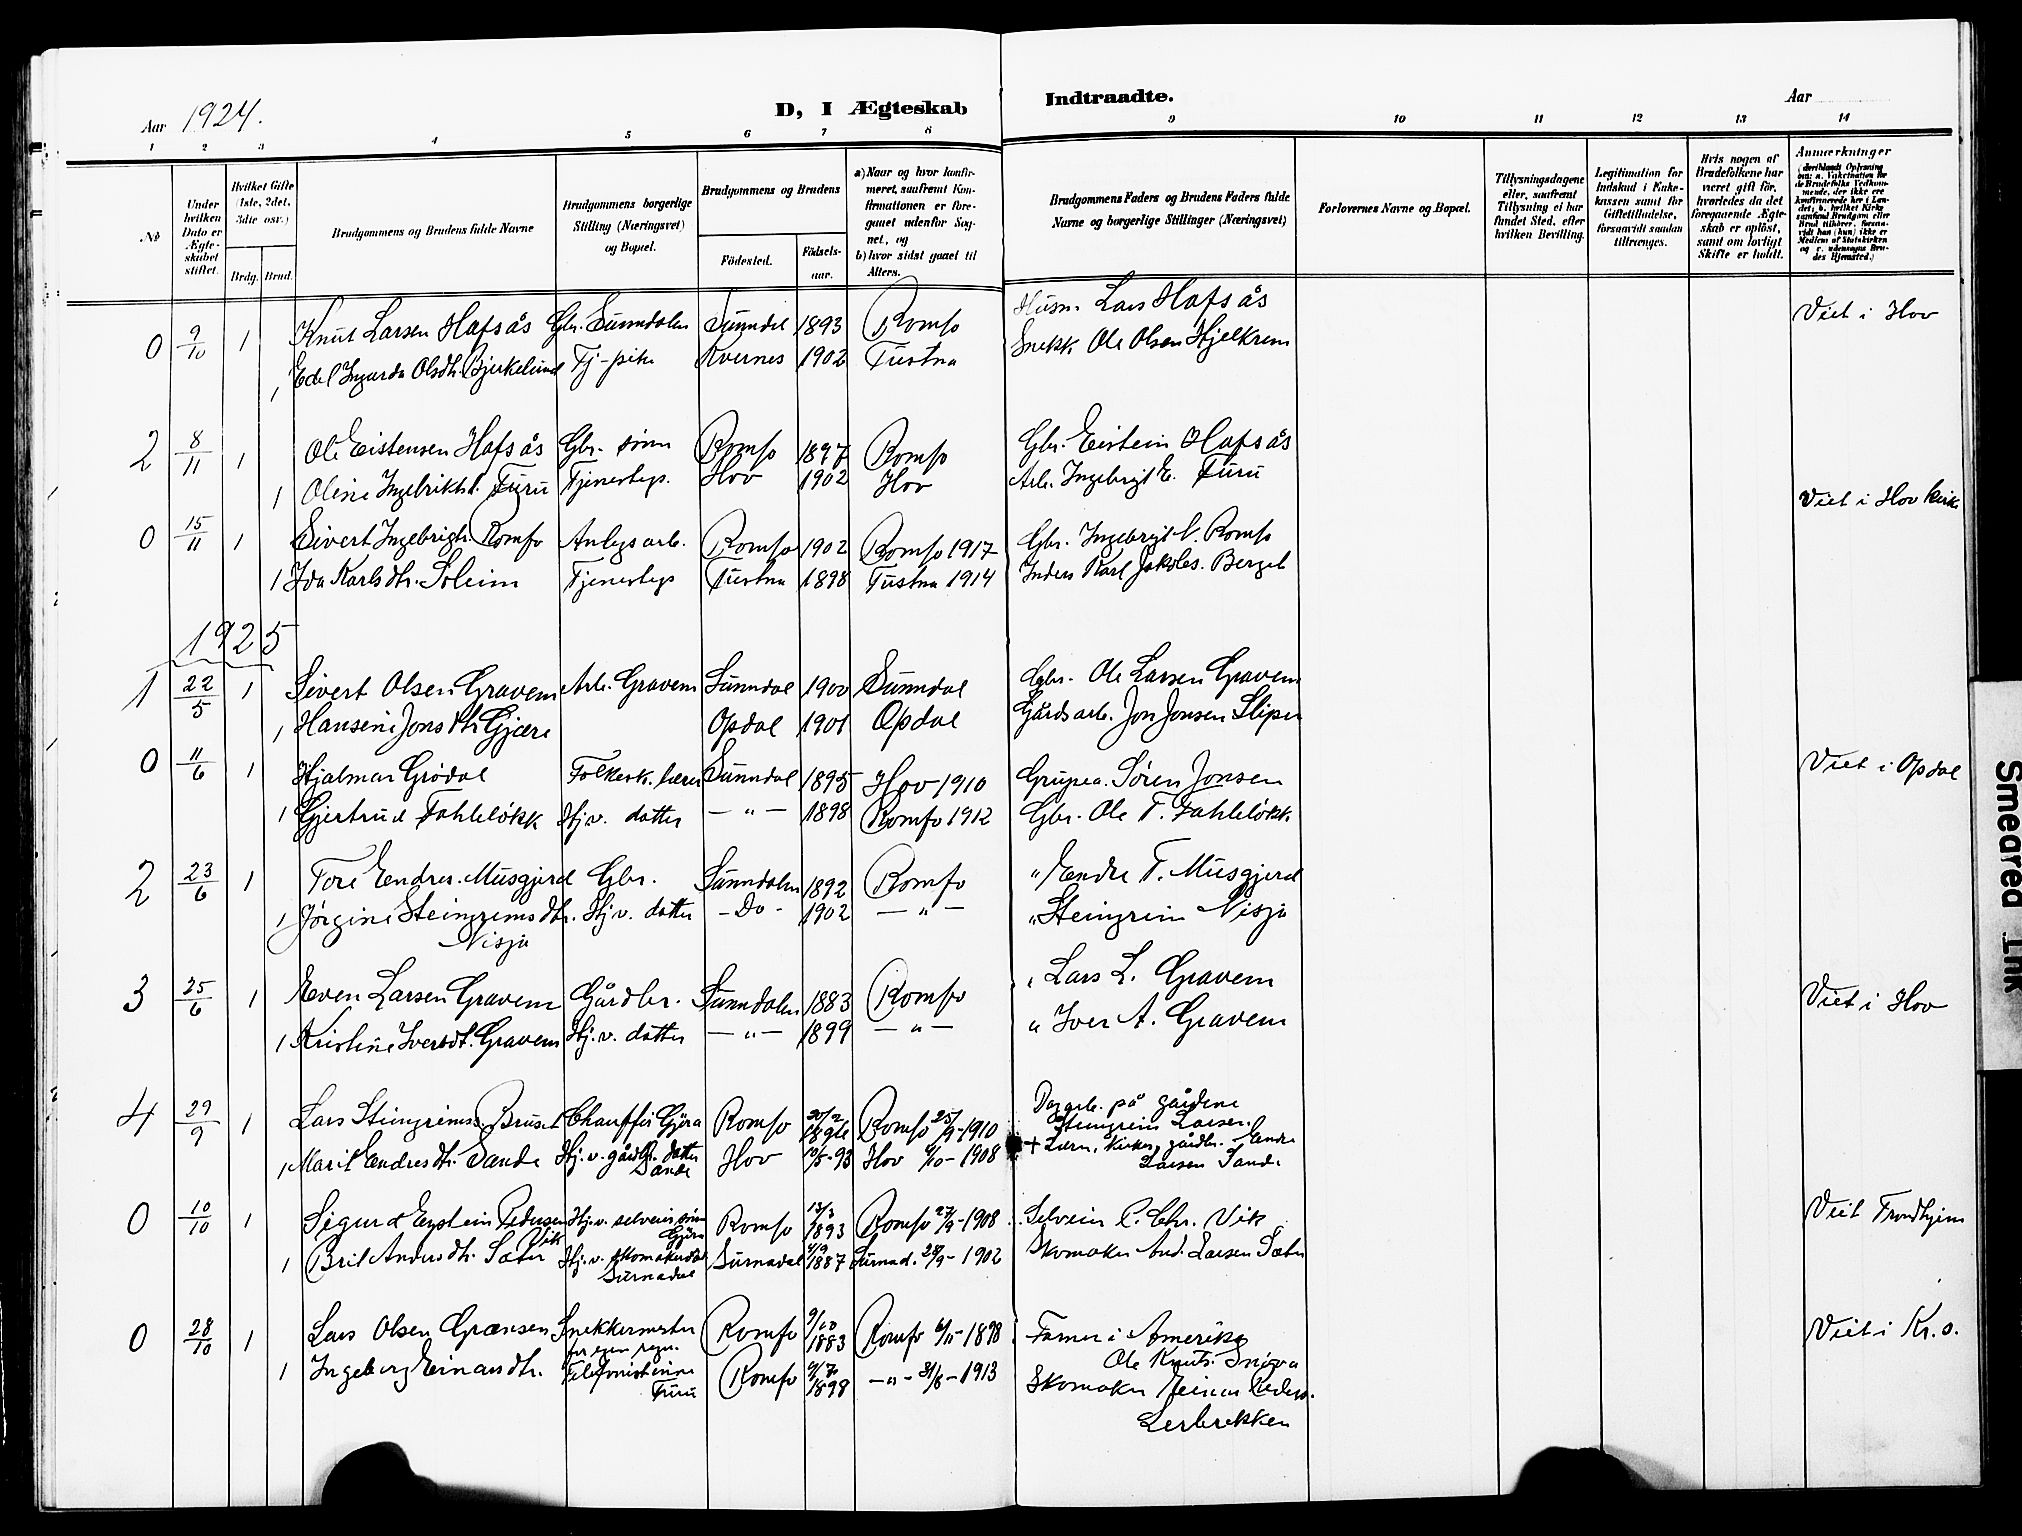 Aar 1924.
D, I Ægteskab Indtraadte.
Aar
1 2 3 4 5 6 7 8 9 10 11 12 13 14
No
Under hvilken Dato er Ægteskabet stiftet.
Hvilket Gifte (1ste, 2det, 3die osv.)
Brdg. Brud.
Brudgommens og Brudens fulde Navne
Brudgommens borgerlige Stilling (Næringsvei) og Bopæl.
Brudgommens og Brudens
Födested.
Födsels-aar.
a) Naar og hvor konfirmeret, saafremt Konfirmationen er foregaaet udenfor Sognet, og
b) hvor sidst gaaet til Alters.
Brudgommens Faders og Brudens Faders fulde Navne og borgerlige Stillinger (Næringsvei)
Forlovernes Navne og Bopæl.
Tillysningsdagene eller, saafremt Tillysning ei har fundet Sted, efter hvilken Bevilling.
Legitimation for Indskud i Enkekassen samt for Giftetilladelse, forsaavidt saadan tiltrænges.
Hvis nogen af Brudefolkene har været gift før, hvorledes da det foregaaende Ægteskab er oplöst, samt om lovligt Skifte er holdt.
Anmærkninger
0 9/10 1 Knut Larsen Hafsås Gbr. Sunndalen Sunndal 1893 Romfo Husm. Lars Hafsås Viet i Hov
1 Edel Ingarda Olsdtr. Bjerkelund Tj-pike Kvernes 1902 Tustna Snekk. Ole Olsen Hjelkrem
2 8/11 1 Ole Eistensen Hafsås Gbr. sønn Romfo 1897 Romfo Gbr. Eistein Hafsås
1 Oline Ingebriktsd. Furu Tjenestep. Hov 1902 Hov Arb. Ingebrigt E. Furu
Viet i Hov kirke
0 15/11 1 Sivert Ingebrigts. Romfo Anlegsarb. Romfo 1902 Romfo 1917 Gbr. Ingebrigt Romfo
1 Ida Karlsdtr. Soleim Tjenestep Tustna 1898 Tustna 1914 Inders. Karl Jakobs. Berget
1925
1 22/5 1 Sivert Olsen Gravem Arb. Gravem Sunndal 1900 Sunndal Gbr. Ole Larsen Gravem
1 Hansine Jonsdtr Gjære Opdal 1901 Opdal Gårdsarb. Jon Jonsen Sliper
0 11/6 1 Hjalmar Grødal Folkesk. lærer Sunndal 1895 Hov 1910 Søren Jonsen Viet i Opdal
1 Gjertrud Fahleløkk Hj.v. datter — " — 1898 Romfo 1912 Gbr. Ole T. Fahleløkk
2 23/6 1 Tore Endres. Musgjerd Gbr. Sunndalen 1892 Romfo " Endre T. Musgjerd
1 Jørgine Steingrimsdtr. Hj v. datter - Do - 1902 — " — " Steingrim Nisja
Nisja
3 25/6 1 Even Larsen Gravem Gårdbr. Sunndalen 1883 Romfo " Lars L. Gravem Viet i Hov
1 Kristine Iversdt. Gravem Hj.v. datter — " — 1899 — " — " Iver A. Gravem
4 29/9 1 Lars Steingrims. Bruset Chauffør Gjøra Romfo 20/2 1896 Romfo 25/9-1910 Dagarb. på gårdene
Steingrim Larsen.
1 Marit Endresdtr. Sande Hj.v. gårdbr. datter Sande Hov 10/5-93 Hov -1908 + Lærer, kirkes., gårdbr. Endre
Larsen Sande
0 10/10 1 Sigurd Eystein Pedersen Vik Hj.v. selveiersønn Gjøra Romfo 13/3 1893 Romfo 27/9-1908 Selveier P. Chr. Vik Viet Trondhjem
1 Brit Andersdtr. Sæter Hj.v. skomakerdtr Surnadal Surnadal 1887 Surnad. 28/9-1902 Skomaker And. Larsen Sæter
0 28/10 1 Lars Olsen Grænsen Snekkermester Romfo 9/10 1883 Romfo -1898 Farmer i Amerika Viet i Kr.s.
for egen regn. Ole Knuts.
1 Ingeborg Einarsdtr. Telefonistinne Furu Romfo 9/7 1898 — " - 31/8-1913 Skomaker Einar Peders.
Lerbrekken
Smeared Ink